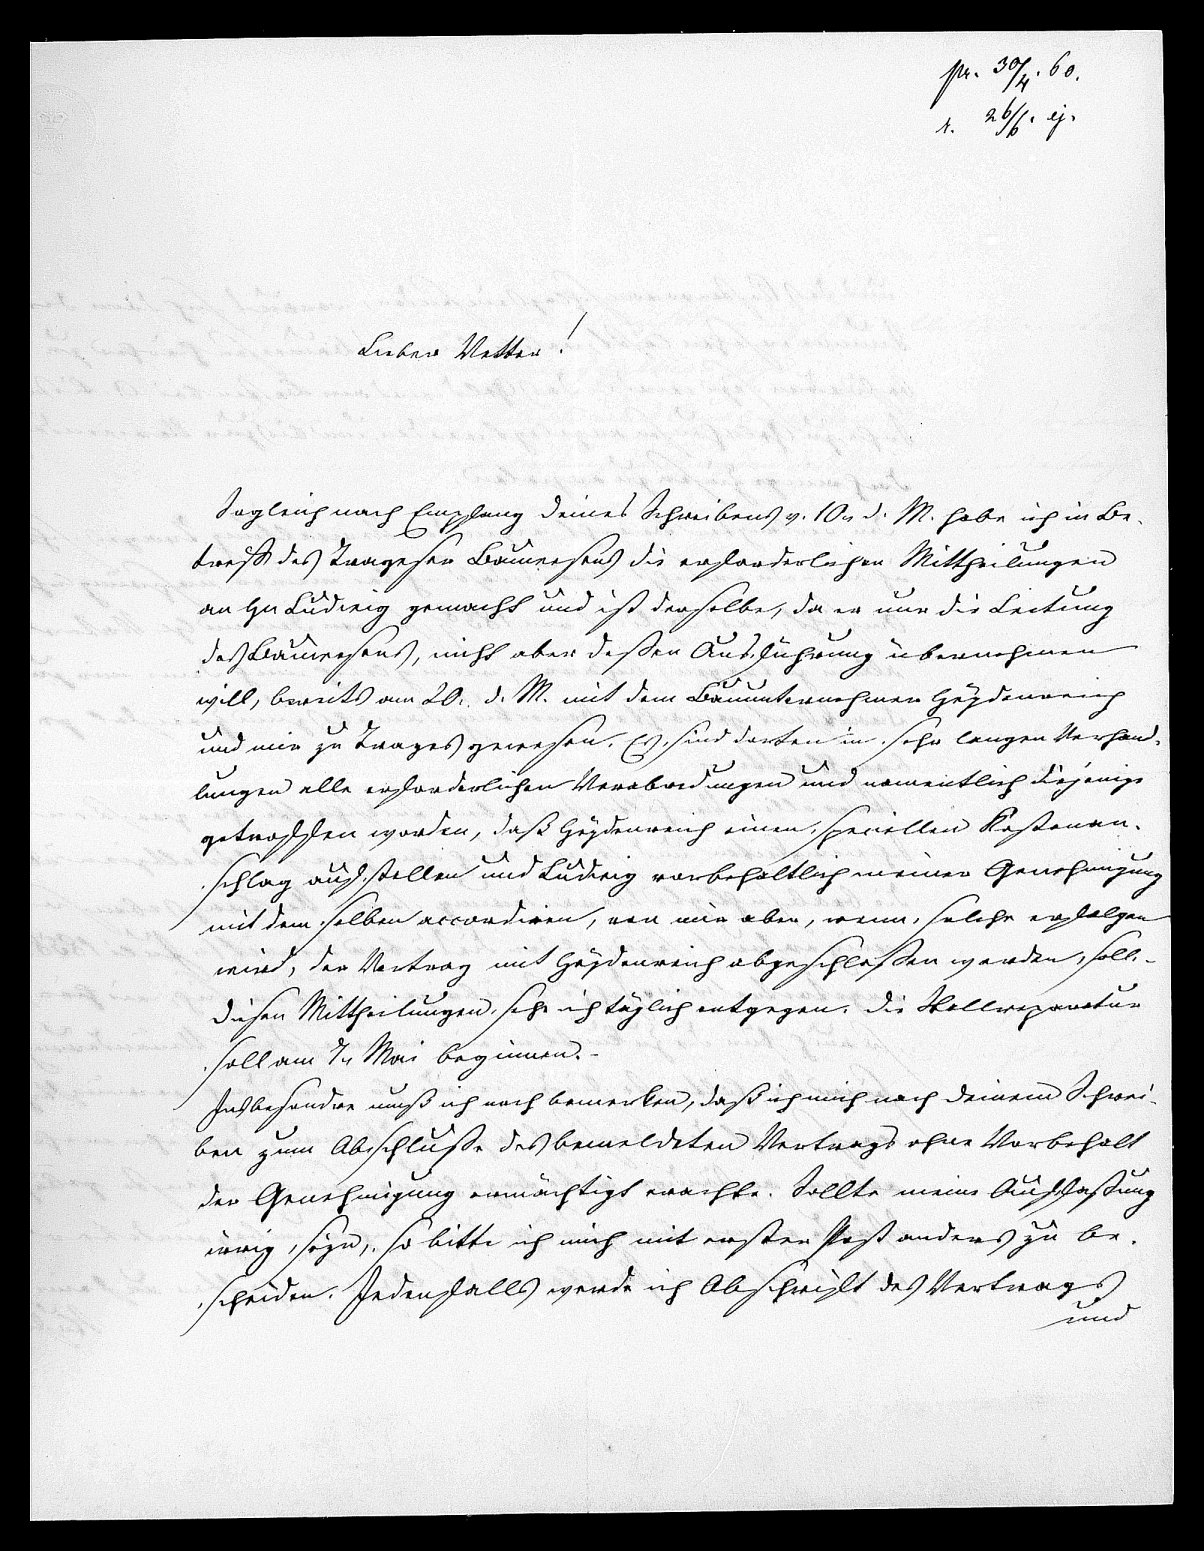 pr. 30/4. 60.
r. 26/6. ej.
Lieber Vetter!
Sogleich nach Empfang deines Schreibens v. 10n d. M. habe ich in Be-
treff des Trageser Bauwesens die erforderlichen Mittheilungen
an Hn Ludwig gemacht und ist derselbe, da er nur die Leitung
des Bauwesens, nicht aber deßen Ausführung übernehmen
will, bereits am 20. d. M. mit dem Bauunternehmer Heydenreich
und mir zu Trages gewesen. Es sind dorten in sehr langen Verhand-
lungen alle erforderlichen Verabredungen und namentlich diejenige
getroffen worden, daß Heydenreich einen speciellen Kostenan-
schlag aufstellen und Ludwig vorbehaltlich meiner Genehmigung
mit demselben accordiren, von mir aber, wenn solche erfolgen
wird, der Vertrag mit Heydenreich abgeschloßen werden soll.-
Diesen Mittheilungen sehe ich täglich entgegen. Die Stallreparatur
soll am 7n Mai beginnen.-
Insbesondre muß ich noch bemerken, daß ich mich nach deinem Schrei-
ben zum Abschluße des bemeldeten Vertrags ohne Vorbehalt
der Genehmigung ermächtigt erachte. Sollte meine Auffaßung
irrig seyn, so bitte ich mich mit erster Post anders zu be-
scheiden. Jedenfalls werde ich Abschrift des Vertrags
und